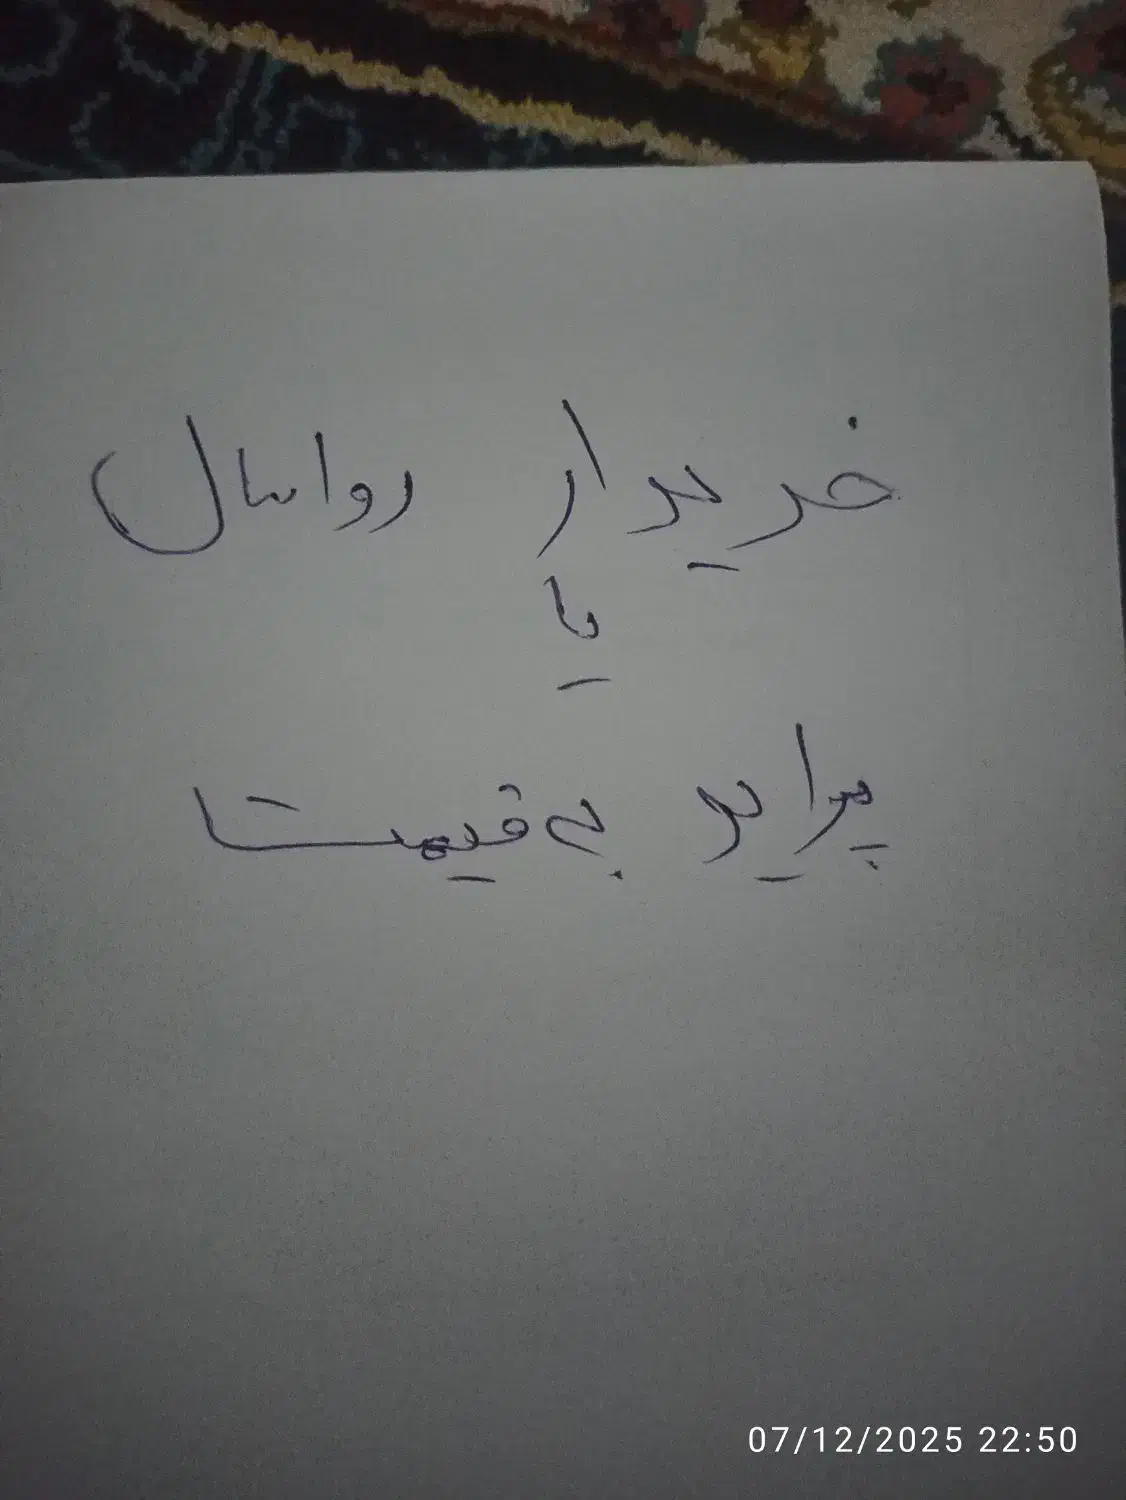 خریدار روا سال
یا
پراید به قیمت
07/12/2025 22:50